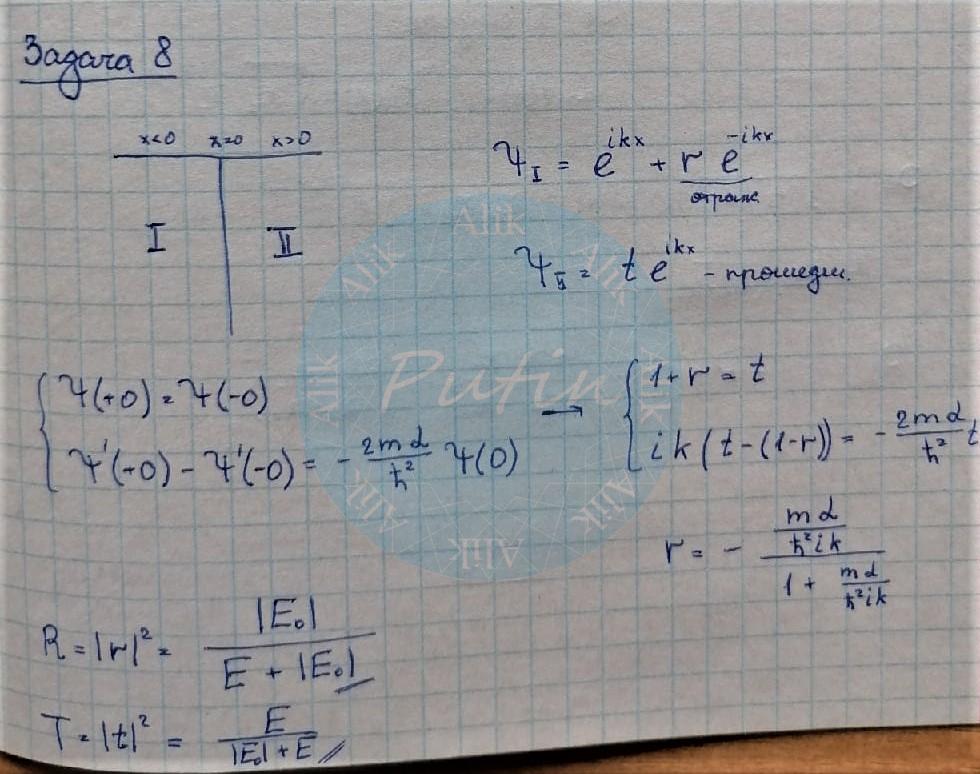 Задача 8
x<0 x=0 x>0
I II
Ψ_I = e^{ikx} + r e^{-ikx}
отраж.
Ψ_II = t e^{ikx} - прошедш.
{ Ψ(+0) = Ψ(-0)
Ψ'(+0) - Ψ'(-0) = - \frac{2mα}{ħ²} Ψ(0)
→
{ 1+r = t
ik(t-(1-r)) = - \frac{2mα}{ħ²} t
r = - \frac{\frac{mα}{ħ²ik}}{1 + \frac{mα}{ħ²ik}}
R = |r|² = \frac{|E₀|}{E + |E₀|}
T = |t|² = \frac{E}{|E₀| + E}
Alik Alik Alik Alik Alik Alik Alik Alik
Putin